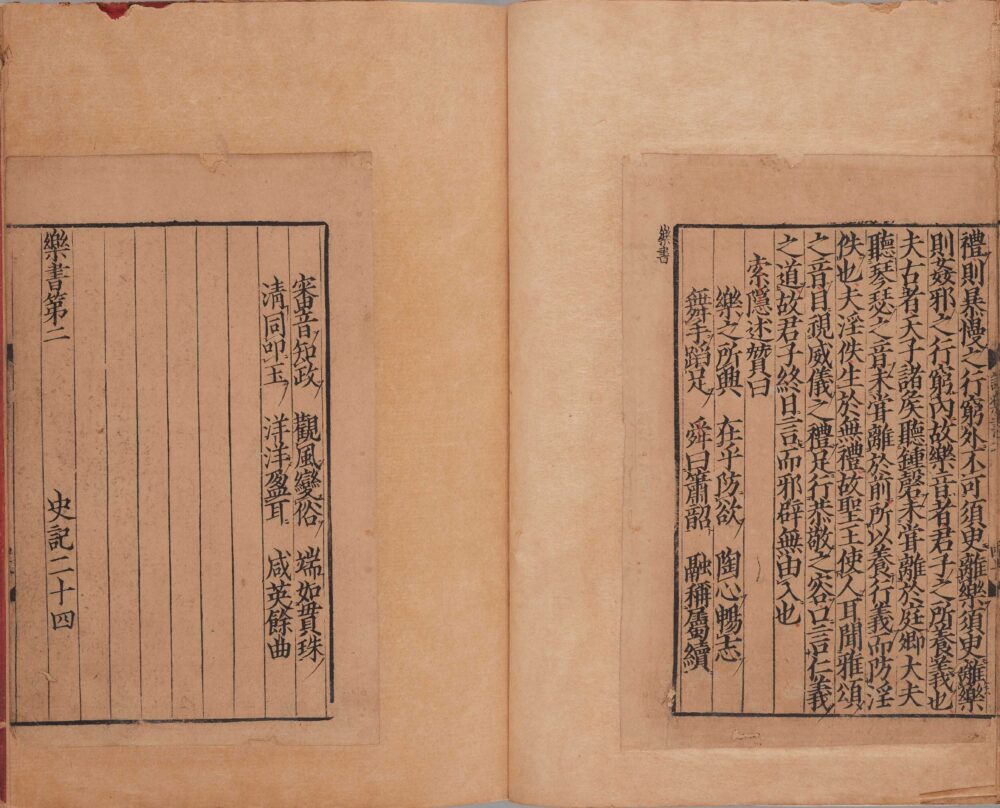 禮則暴慢之行窮外不可須臾離樂須臾離樂
則姦邪之行窮内故樂音者君子之所養義也
夫古者天子諸矦聽鍾磬未甞離於庭卿大夫
聽琴瑟之音未甞離於前所以養行義而防淫
佚也夫淫佚生於無禮故聖王使人耳聞雅頌
之音目視威儀之禮足行恭敬之容口言仁義
之道故君子終日言而邪辟無由入也
索隱述贊曰
樂之所興 在乎防欲 陶心暢志
舞手蹈足 舜曰簫韶 融稱屬續
樂書
審音知政 觀風變俗 端如貫珠
清同叩玉 洋洋盈耳 咸英餘曲
樂書第二 史記二十四